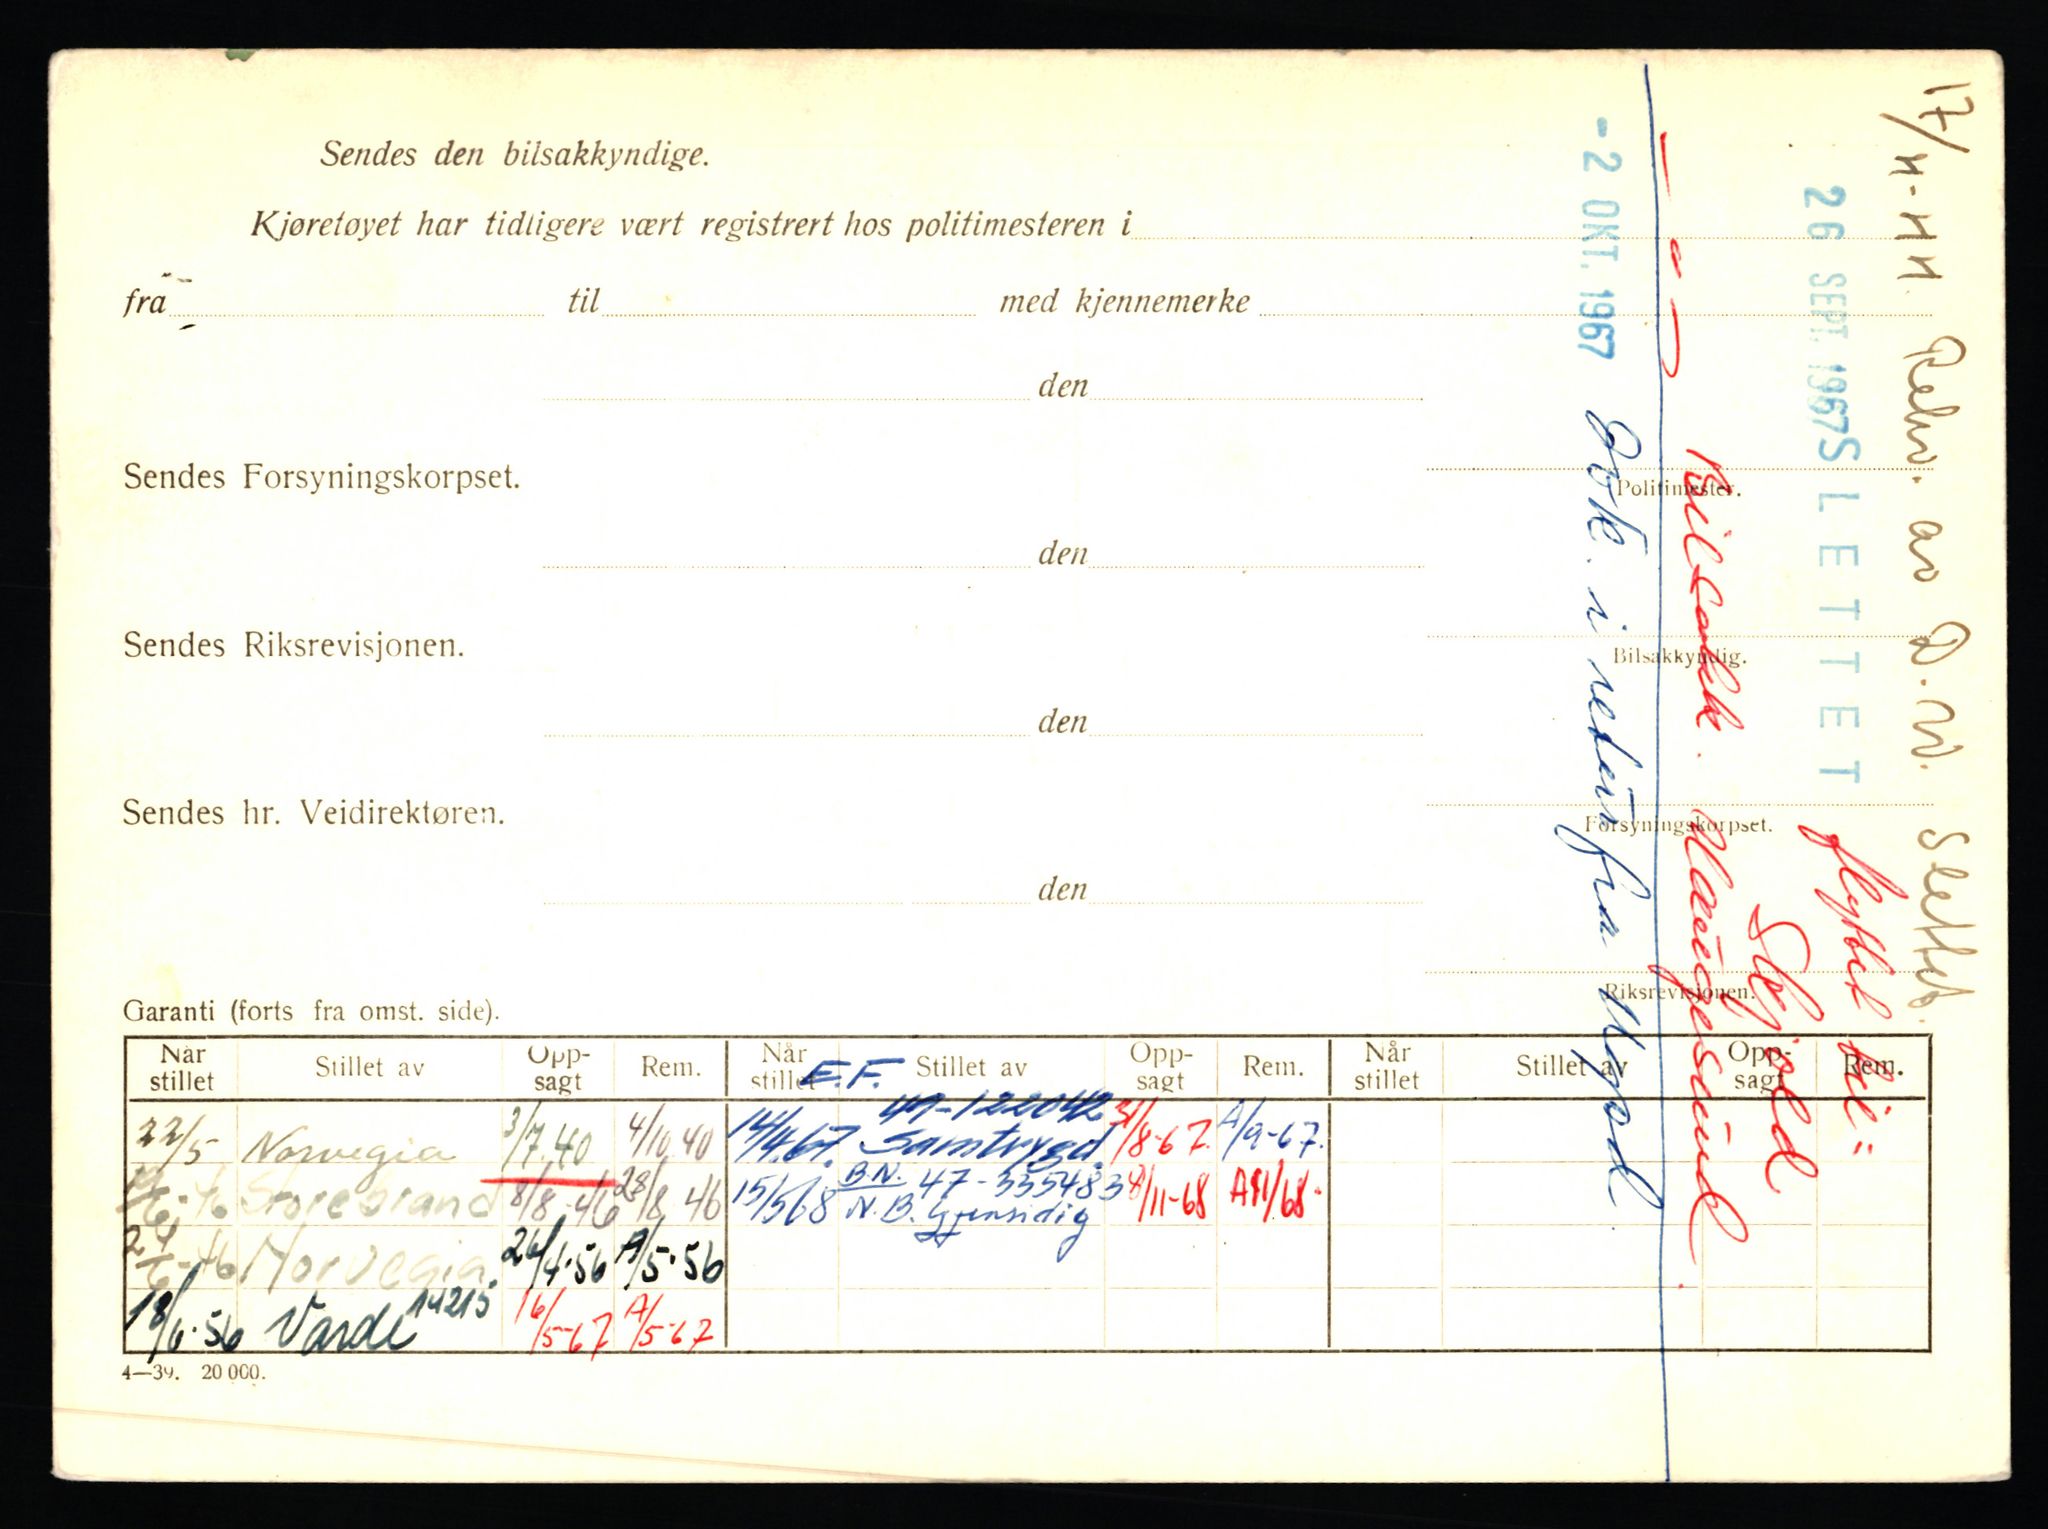 Sendes den bilsakkyndige.
Kjøretøyet har tidligere vært registrert hos politimesteren i
fra til med kjennemerke
den
Sendes Forsyningskorpset.
Politimester.
den
Sendes Riksrevisjonen.
Bilsakkyndig.
den
Sendes hr. Veidirektøren.
Forsyningskorpset.
den
Riksrevisjonen.
Garanti (forts fra omst. side).
Når stillet Stillet av Opp-sagt Rem. Når stillet Stillet av Opp-sagt Rem. Når stillet Stillet av Opp-sagt Rem.
E.F. 49-122042
22/5 Norvegia 3/7.40 4/10.40 14/4.67. Samtrygd. 31/8-67. A/9-67.
Storebrand 8/8-46 28/8 46 15/5 68 B.N. 47-355483 N.B. Gjensidig 8/11-68 A11/68.
24/6-46 Norvegia 26/4.56 A/5.56
18/6.56 Varde 14215 16/5-67 A/5-67
4—39. 20 000.
17/4-44 Rekv. av D.W. Slettet.
26 SEPT. 1967 SLETTET
flyttet til:
Skjold
— " — Bilsakk. Haugesund.
- 2 OKT. 1967 Dok. i retur fra Uypd.